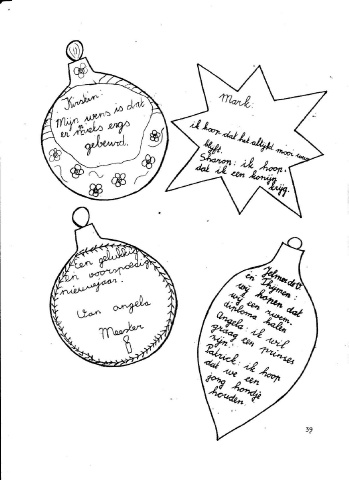 Kirsten:
Mijn wens is dat
er niets ergs
gebeurd.
Mark:
ik hoop dat het altijd mooi weer
blijft.
Sharon: ik hoop,
dat ik een konijn
krijg.
Een gelukkig
en voorspoedig
nieuwjaar:
Van angela
Meester
Jelmer de V
en Thijmen:
wij hopen dat
wij een zwem
diploma halen
Angela: ik wil
graag een prinses
zijn.
Patrick: ik hoop
dat we een
jong hondje
houden
39